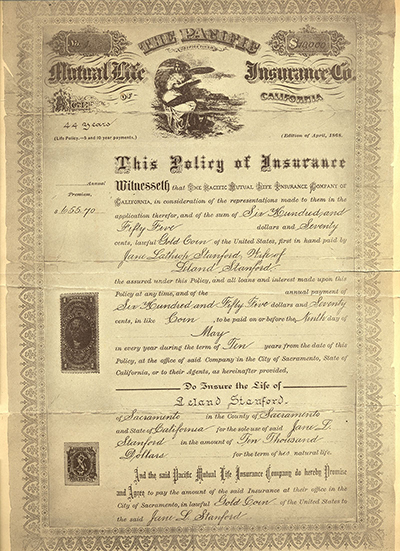 No. 1
THE PACIFIC
$10,000
Mutual Life Insurance Co.
OF CALIFORNIA
44 years
(Life Policy.—5 and 10 year payments.)
(Edition of April, 1868.
This Policy of Insurance
Annual
Premium,
$655.70
Witnesseth that THE PACIFIC MUTUAL LIFE INSURANCE COMPANY OF
CALIFORNIA, in consideration of the representations made to them in the
application therefor, and of the sum of Six Hundred and
Fifty Five dollars and Seventy
cents, lawful Gold Coin of the United States, first in hand paid by
Jane Lathrop Stanford, Wife of
Leland Stanford
the assured under this Policy, and all loans and interest made upon this
Policy at any time, and of the annual payment of
Six Hundred and Fifty Five dollars and Seventy
cents, in like Coin, to be paid on or before the Ninth day of
May
in every year during the term of Ten years from the date of this
Policy, at the office of said Company in the City of Sacramento, State of
California, or to their Agents, as hereinafter provided,
Do Insure the Life of
Leland Stanford.
of Sacramento in the County of Sacramento
and State of California for the sole use of said Jane L.
Stanford in the amount of Ten Thousand
Dollars for the term of his natural life.
And the said Pacific Mutual Life Insurance Company do hereby Promise
and Agree to pay the amount of the said Insurance at their office in the
City of Sacramento, in lawful Gold Coin of the United States to
the said Jane L Stanford